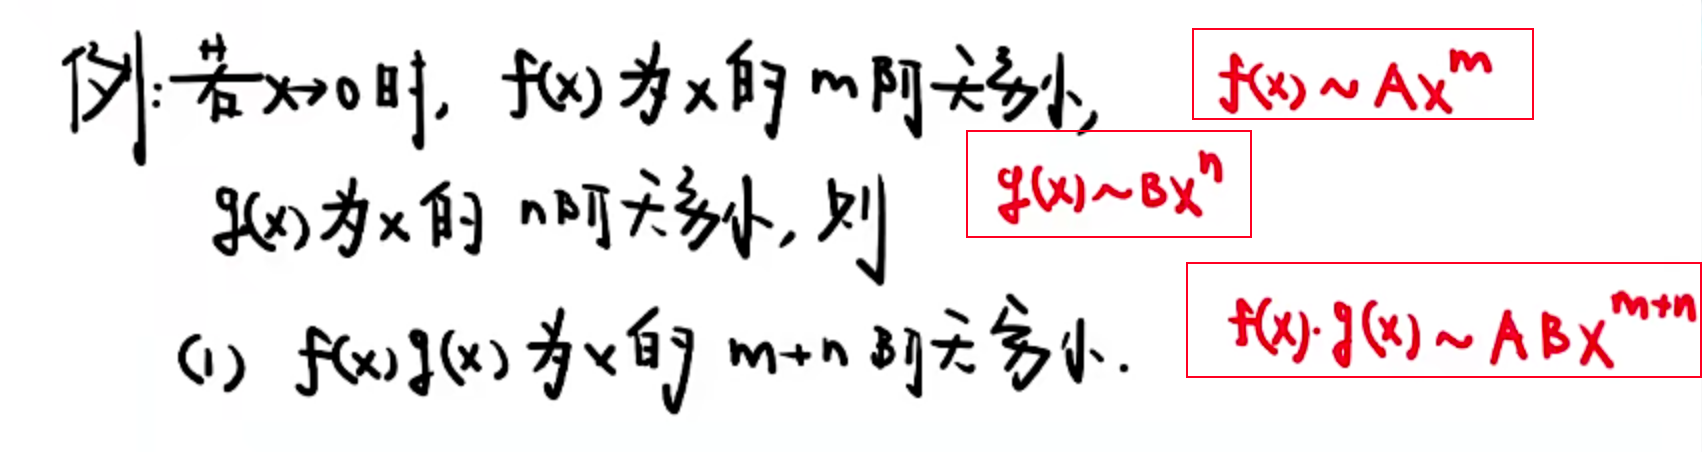 例: 若 x→0 时, f(x) 为 x 的 m 阶无穷小, f(x) ~ Ax^m
g(x) 为 x 的 n 阶无穷小, 则 g(x) ~ Bx^n
(1) f(x)g(x) 为 x 的 m+n 阶无穷小. f(x)·g(x) ~ ABx^{m+n}